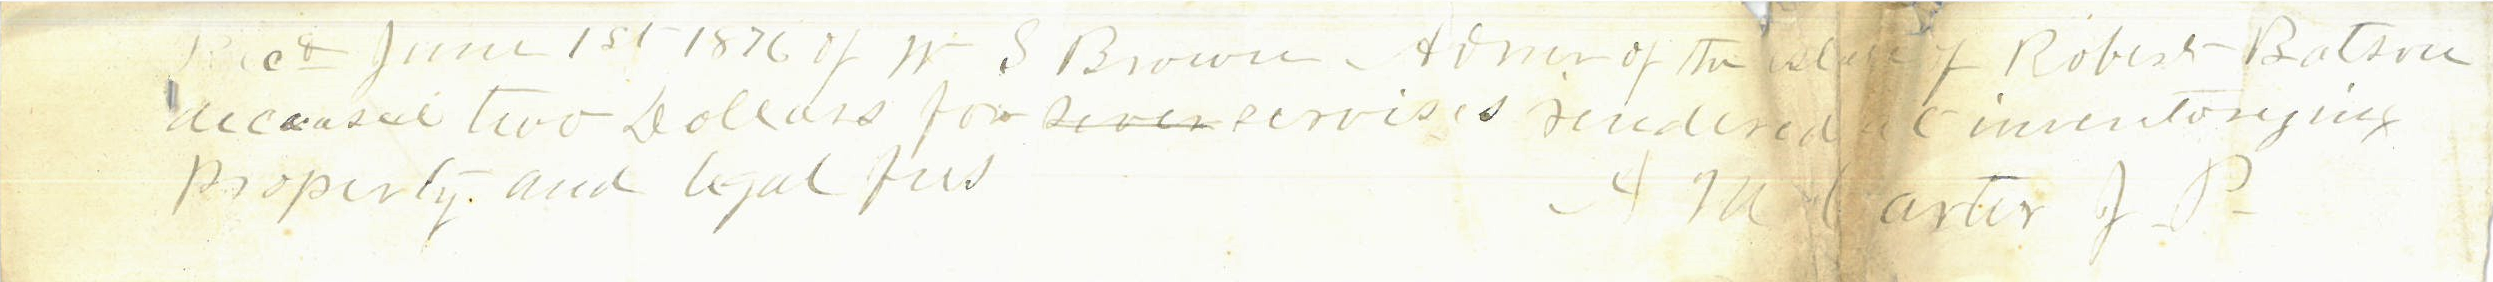 Recd June 1st 1876 of W S Brown Admr of the estate of Robert Batson
deceased two Dollars for sever servises rendered at inventorying
property and legal fees
A M Carter J P